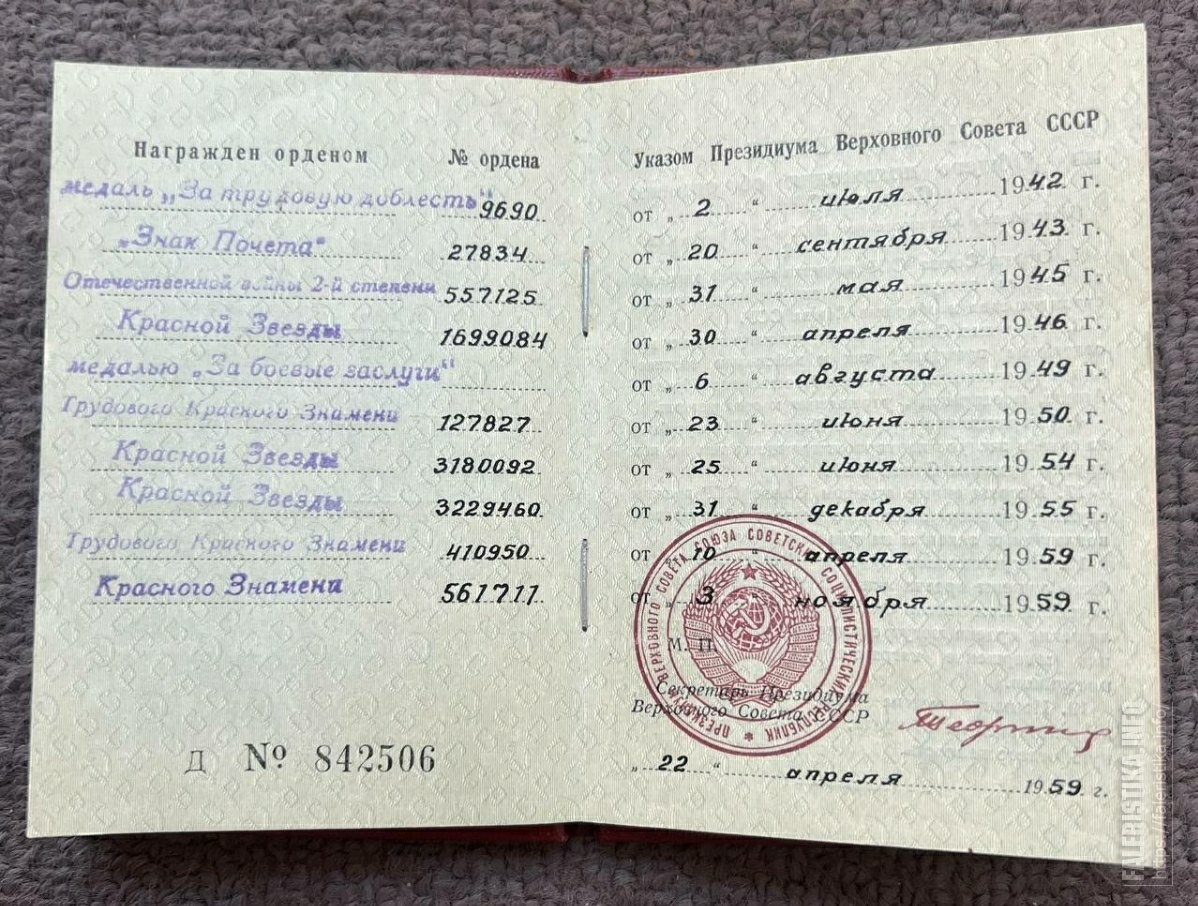 Награжден орденом № ордена Указом Президиума Верховного Совета СССР
медаль „За трудовую доблесть“ 9690 от „ 2 “ июля 1942 г.
„Знак Почета“ 27834 от „ 20 “ сентября 1943 г.
Отечественной войны 2-й степени 557125 от „ 31 “ мая 1945 г.
Красной Звезды 1699084 от „ 30 “ апреля 1946 г.
медалью „За боевые заслуги“ от „ 6 “ августа 1949 г.
Трудового Красного Знамени 127827 от „ 23 “ июня 1950 г.
Красной Звезды 3180092 от „ 25 “ июня 1954 г.
Красной Звезды 3229460 от „ 31 “ декабря 1955 г.
Трудового Красного Знамени 410950 от „ 10 “ апреля 1959 г.
Красного Знамени 561711 от „ 3 “ ноября 1959 г.
ПРЕЗИДИУМ ВЕРХОВНОГО СОВЕТА СОЮЗА СОВЕТСКИХ СОЦИАЛИСТИЧЕСКИХ РЕСПУБЛИК
М. П.
Секретарь Президиума
Верховного Совета СССР
Д № 842506
„ 22 “ апреля 1959 г.
FALERISTIKA.INFO